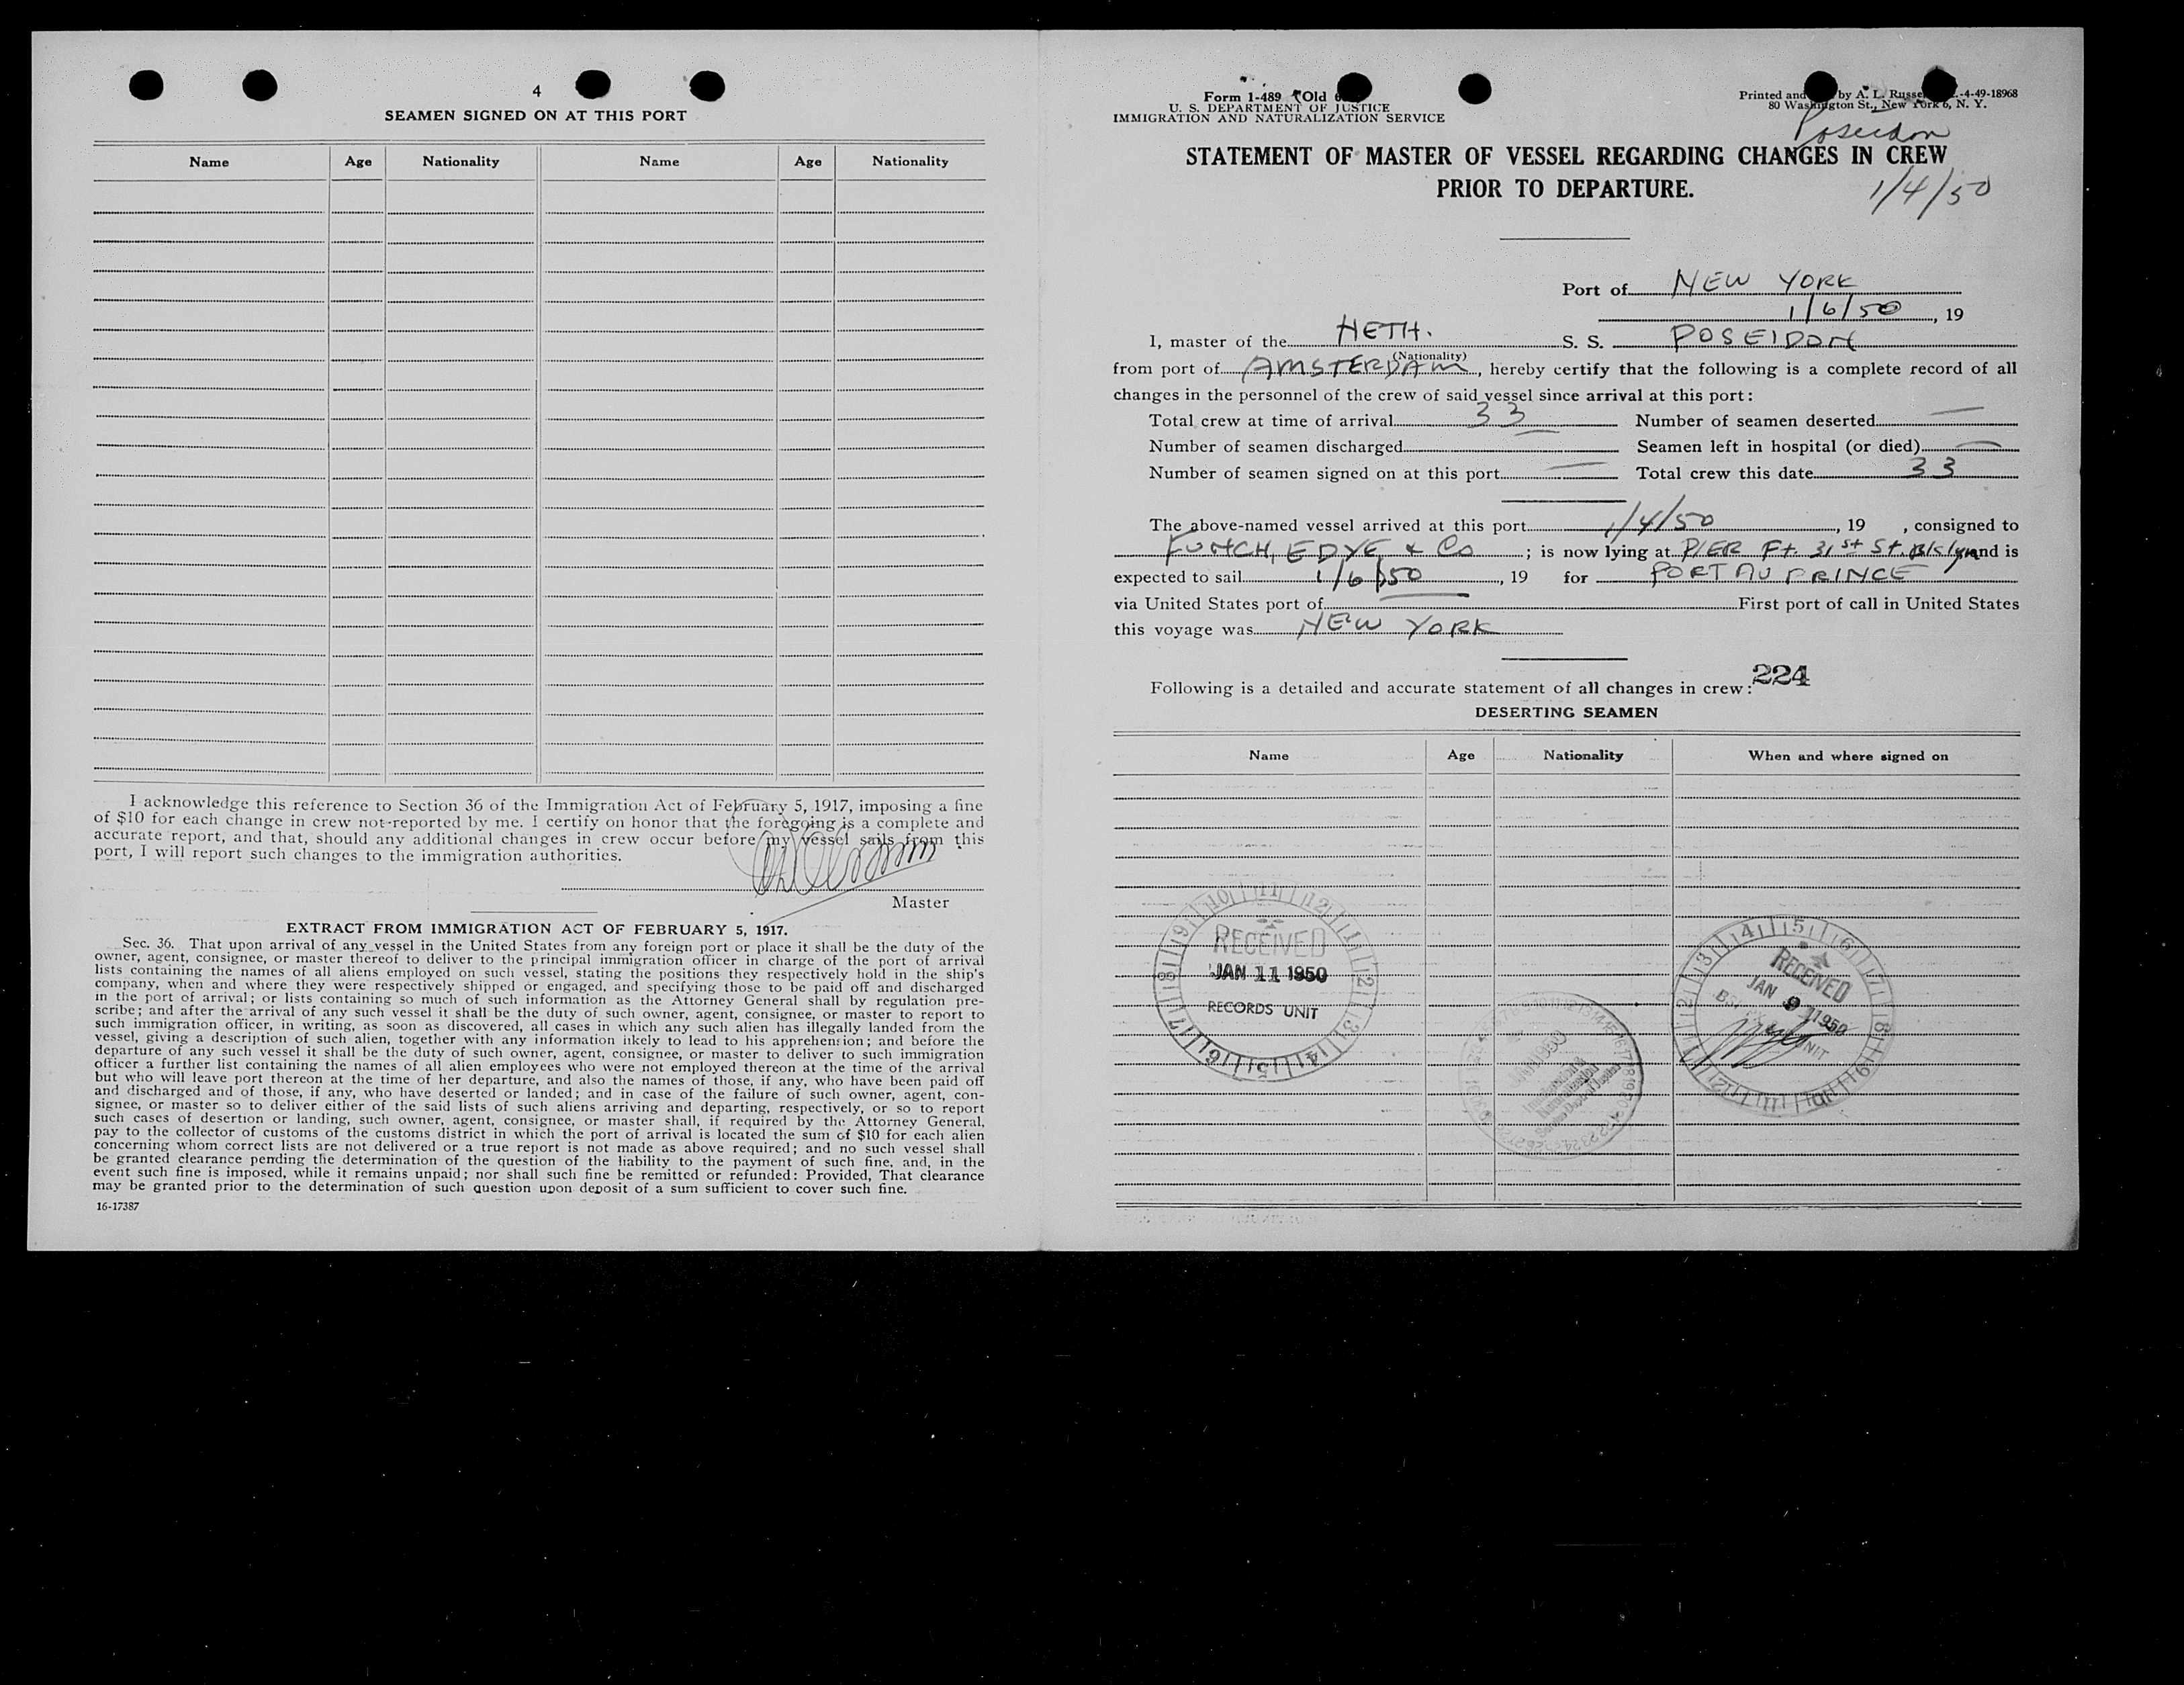 4
SEAMEN SIGNED ON AT THIS PORT
Name Age Nationality Name Age Nationality
I acknowledge this reference to Section 36 of the Immigration Act of February 5, 1917, imposing a fine
of $10 for each change in crew not reported by me. I certify on honor that the foregoing is a complete and
accurate report, and that, should any additional changes in crew occur before my vessel sails from this
port, I will report such changes to the immigration authorities.
Master
EXTRACT FROM IMMIGRATION ACT OF FEBRUARY 5, 1917.
Sec. 36. That upon arrival of any vessel in the United States from any foreign port or place it shall be the duty of the
owner, agent, consignee, or master thereof to deliver to the principal immigration officer in charge of the port of arrival
lists containing the names of all aliens employed on such vessel, stating the positions they respectively hold in the ship's
company, when and where they were respectively shipped or engaged, and specifying those to be paid off and discharged
in the port of arrival; or lists containing so much of such information as the Attorney General shall by regulation pre-
scribe; and after the arrival of any such vessel it shall be the duty of such owner, agent, consignee, or master to report to
such immigration officer, in writing, as soon as discovered, all cases in which any such alien has illegally landed from the
vessel, giving a description of such alien, together with any information likely to lead to his apprehension; and before the
departure of any such vessel it shall be the duty of such owner, agent, consignee, or master to deliver to such immigration
officer a further list containing the names of all alien employees who were not employed thereon at the time of the arrival
but who will leave port thereon at the time of her departure, and also the names of those, if any, who have been paid off
and discharged and of those, if any, who have deserted or landed; and in case of the failure of such owner, agent, con-
signee, or master so to deliver either of the said lists of such aliens arriving and departing, respectively, or so to report
such cases of desertion or landing, such owner, agent, consignee, or master shall, if required by the Attorney General,
pay to the collector of customs of the customs district in which the port of arrival is located the sum of $10 for each alien
concerning whom correct lists are not delivered or a true report is not made as above required; and no such vessel shall
be granted clearance pending the determination of the question of the liability to the payment of such fine, and, in the
event such fine is imposed, while it remains unpaid; nor shall such fine be remitted or refunded: Provided, That clearance
may be granted prior to the determination of such question upon deposit of a sum sufficient to cover such fine.
16-17387
Form 1-489 (Old
U. S. DEPARTMENT OF JUSTICE
IMMIGRATION AND NATURALIZATION SERVICE
Printed and by A. L. -4-49-18968
80 Washington St., New York 6, N. Y.
Poseidon
STATEMENT OF MASTER OF VESSEL REGARDING CHANGES IN CREW
PRIOR TO DEPARTURE.
1/4/50
Port of NEW YORK
1/6/50, 19
I, master of the NETH. S. S. POSEIDON
(Nationality)
from port of AMSTERDAM, hereby certify that the following is a complete record of all
changes in the personnel of the crew of said vessel since arrival at this port:
Total crew at time of arrival 33 Number of seamen deserted —
Number of seamen discharged — Seamen left in hospital (or died) —
Number of seamen signed on at this port — Total crew this date 33
The above-named vessel arrived at this port 1/4/50, 19 , consigned to
FUNCH, EDYE & Co; is now lying at PIER Ft. 31st St. Bklyn and is
expected to sail 1/6/50, 19 for PORT AU PRINCE
via United States port of — First port of call in United States
this voyage was NEW YORK
224
Following is a detailed and accurate statement of all changes in crew:
DESERTING SEAMEN
Name Age Nationality When and where signed on
RECEIVED
JAN 11 1950
RECORDS UNIT
RECEIVED
JAN 9 1950
UNIT